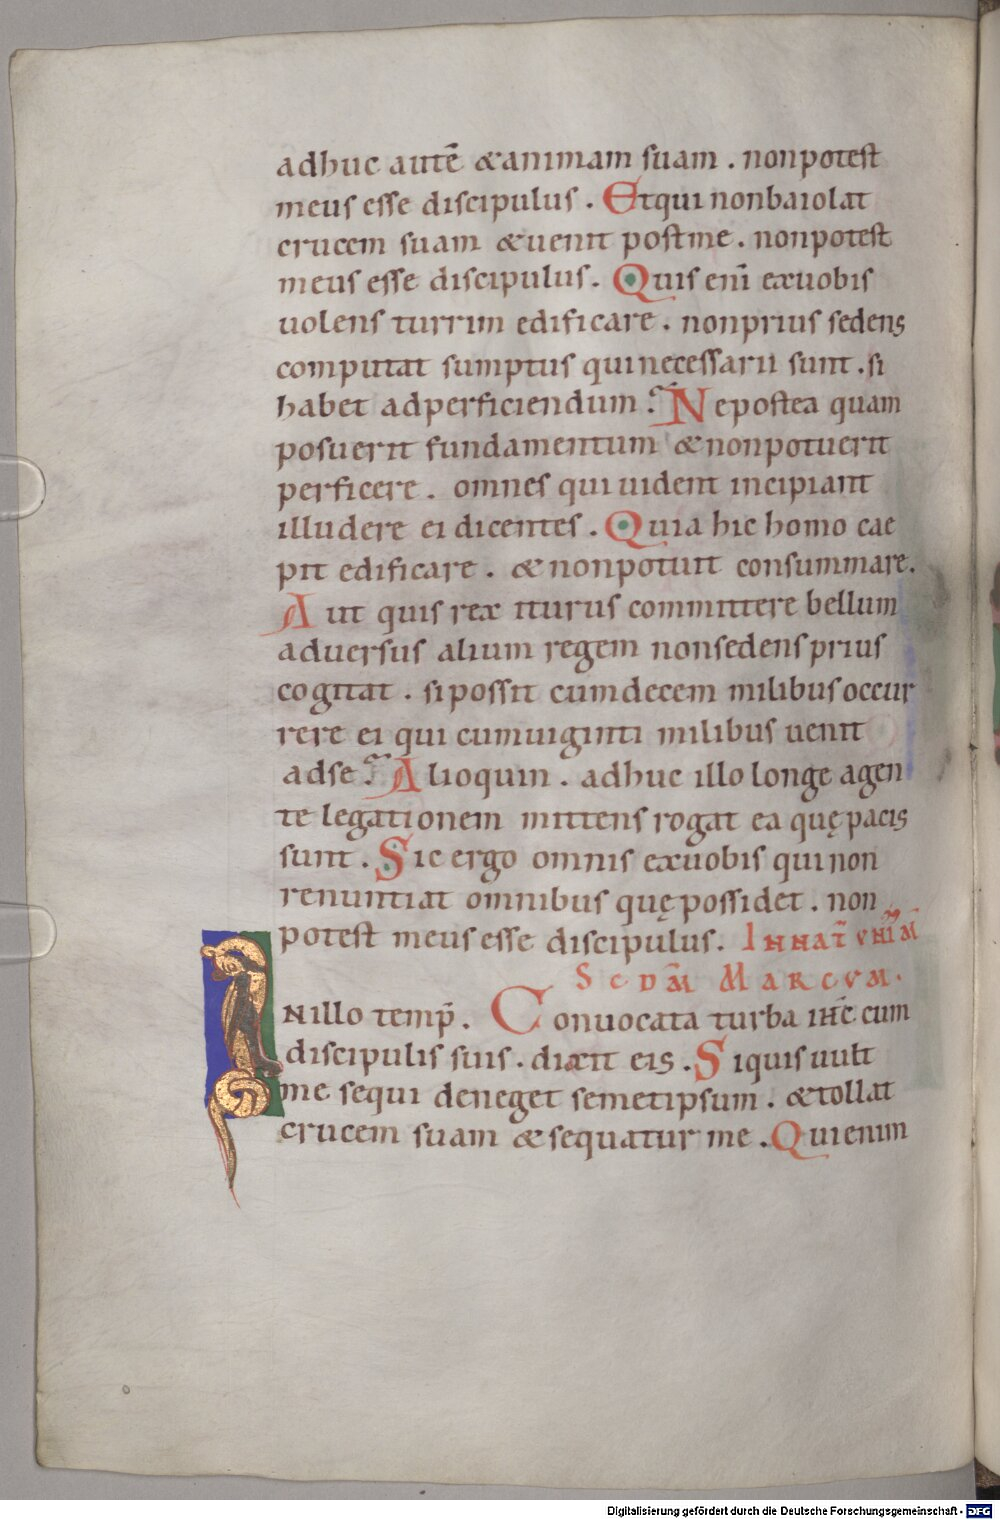 adhuc autē &animam suam . nonpotest
meus esse discipulus . Etqui nonbaiolat
crucem suam &uenit postme . nonpotest
meus esse discipulus . Quis enī exuobis
uolens turrim edificare . nonprius sedens
computat sumptus quinecessarii sunt . si
habet adperficiendum ? Nepostea quam
posuerit fundamentum & nonpotuerit
perficere . omnes qui uident incipiant
illudere ei dicentes . Quia hic homo cae
pit edificare . & nonpotuit consummare .
Aut quis rex iturus committere bellum
aduersus alium regem nonsedens prius
cogitat . sipossit cumdecem milibus occur
rere ei qui cumuiginti milibus uenit
adse ? Alioquin . adhuc illo longe agen
te legationem mittens rogat ea quę pacis
sunt . Sic ergo omnis exuobis qui non
renuntiat omnibus quę possidet . non
potest meus esse discipulus . INNAT̄
SCDM̄ MARCVM .
INillo temp̄ . Conuocata turba ihc̄ cum
discipulis suis . dixit eis . Siquis uult
me sequi deneget semetipsum . &tollat
crucem suam & sequatur me . Quienim
Digitalisierung gefördert durch die Deutsche Forschungsgemeinschaft - DFG